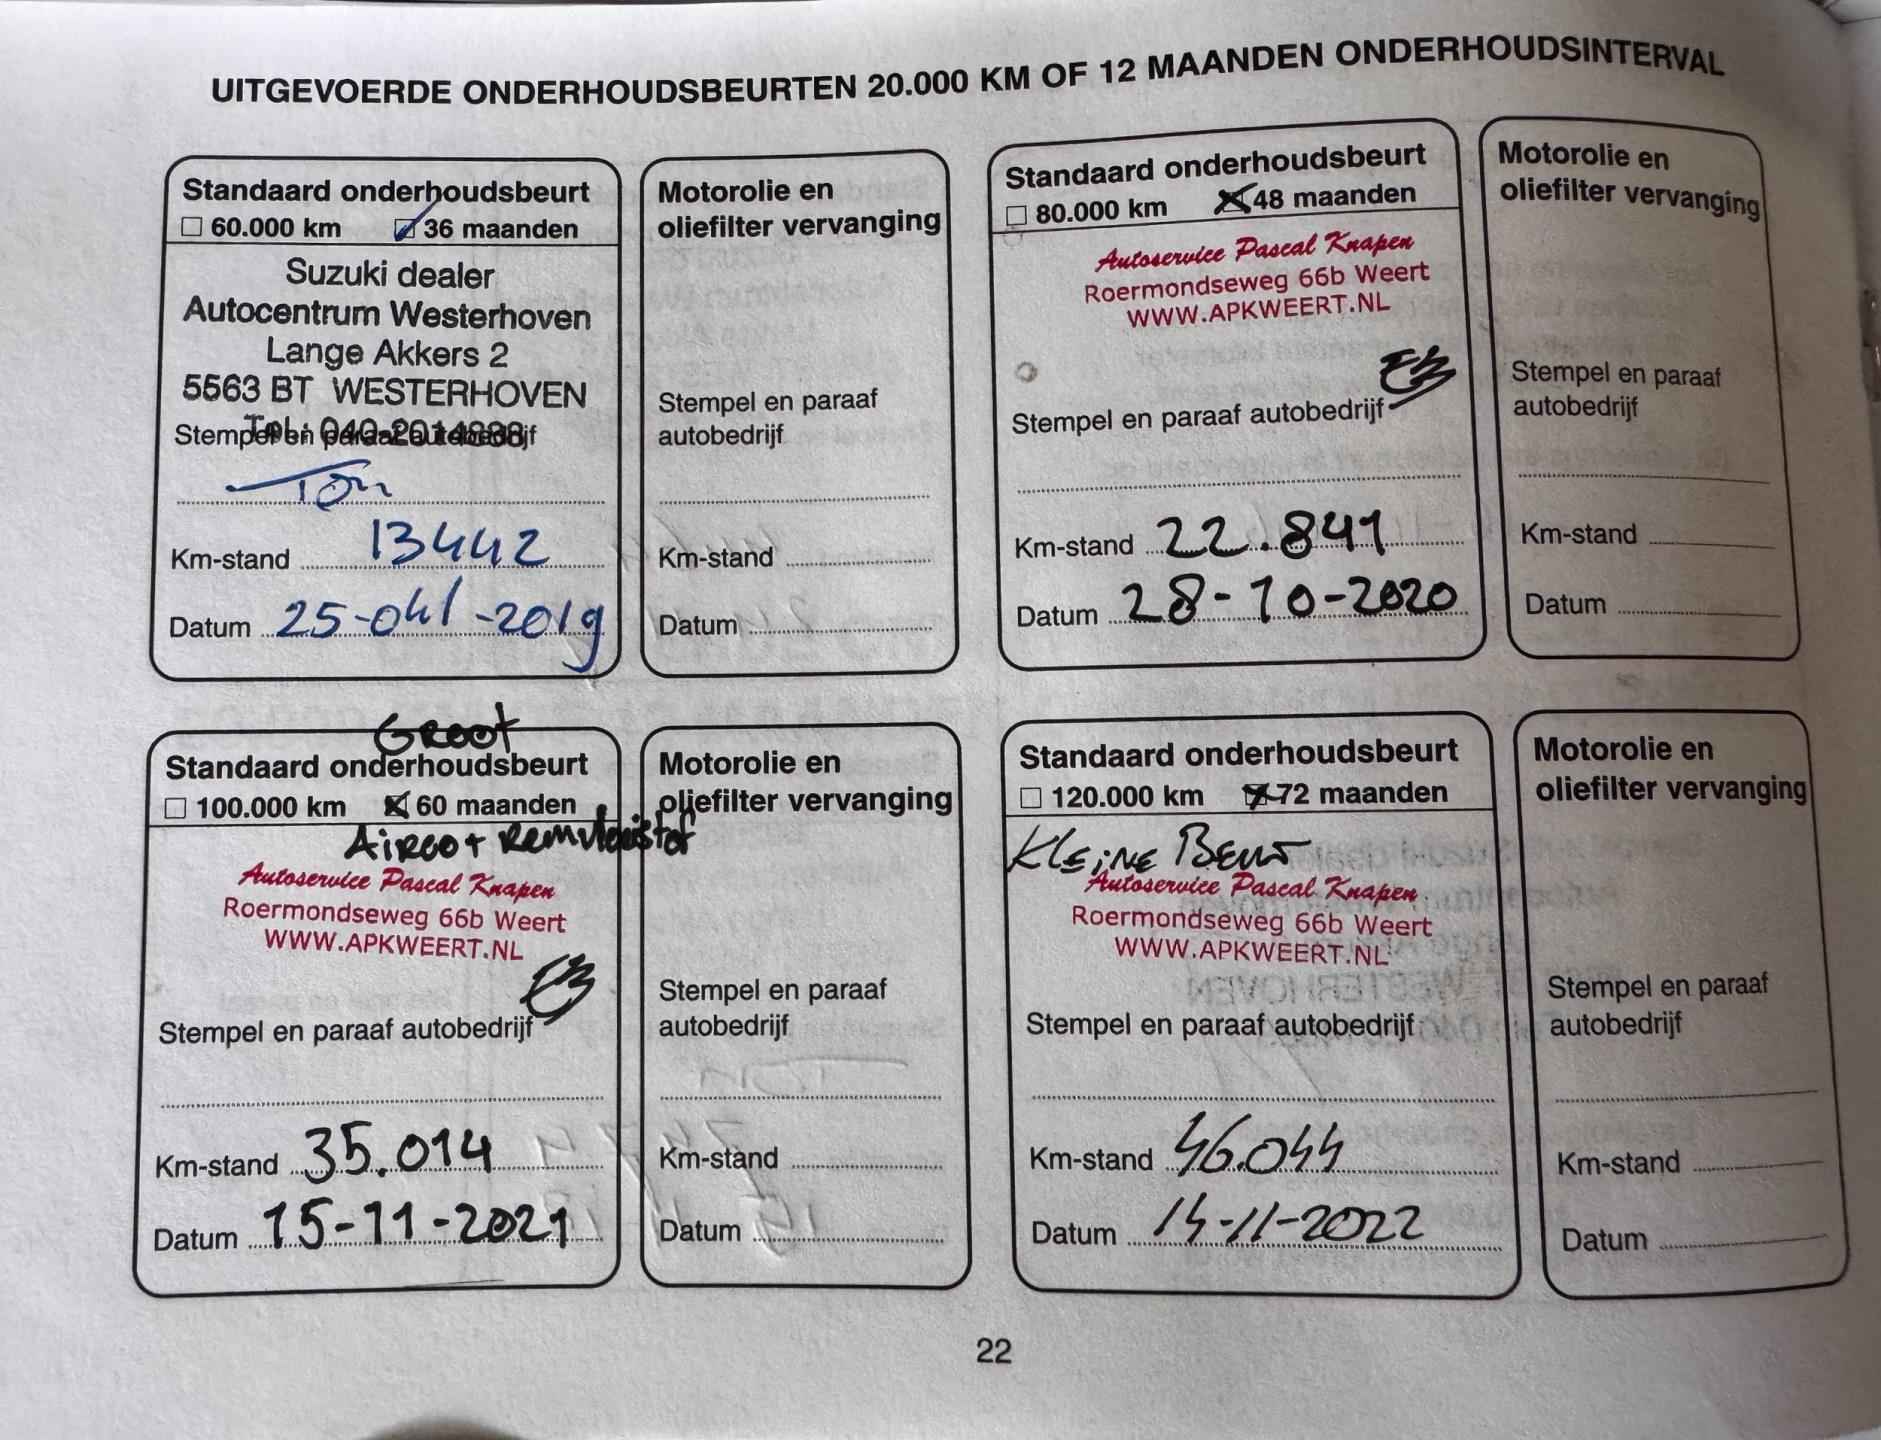 UITGEVOERDE ONDERHOUDSBEURTEN 20.000 KM OF 12 MAANDEN ONDERHOUDSINTERVAL
Standaard onderhoudsbeurt
60.000 km 36 maanden
Suzuki dealer
Autocentrum Westerhoven
Lange Akkers 2
5563 BT WESTERHOVEN
Tel.: 040-2014888
Stempel en paraaf autobedrijf
Ton
Km-stand 13442
Datum 25-okt-2019
Motorolie en
oliefilter vervanging
Stempel en paraaf
autobedrijf
Km-stand
Datum
Standaard onderhoudsbeurt
80.000 km 48 maanden
Autoservice Pascal Knapen
Roermondseweg 66b Weert
WWW.APKWEERT.NL
Stempel en paraaf autobedrijf
Km-stand 22.841
Datum 28-10-2020
Motorolie en
oliefilter vervanging
Stempel en paraaf
autobedrijf
Km-stand
Datum
Groot
Standaard onderhoudsbeurt
100.000 km 60 maanden
Airco + Remvloeistof
Autoservice Pascal Knapen
Roermondseweg 66b Weert
WWW.APKWEERT.NL
Stempel en paraaf autobedrijf
Km-stand 35.014
Datum 15-11-2021
Motorolie en
oliefilter vervanging
Stempel en paraaf
autobedrijf
Km-stand
Datum
Standaard onderhoudsbeurt
120.000 km 72 maanden
Kleine Beurt
Autoservice Pascal Knapen
Roermondseweg 66b Weert
WWW.APKWEERT.NL
Stempel en paraaf autobedrijf
Km-stand 46.044
Datum 14-11-2022
Motorolie en
oliefilter vervanging
Stempel en paraaf
autobedrijf
Km-stand
Datum
22